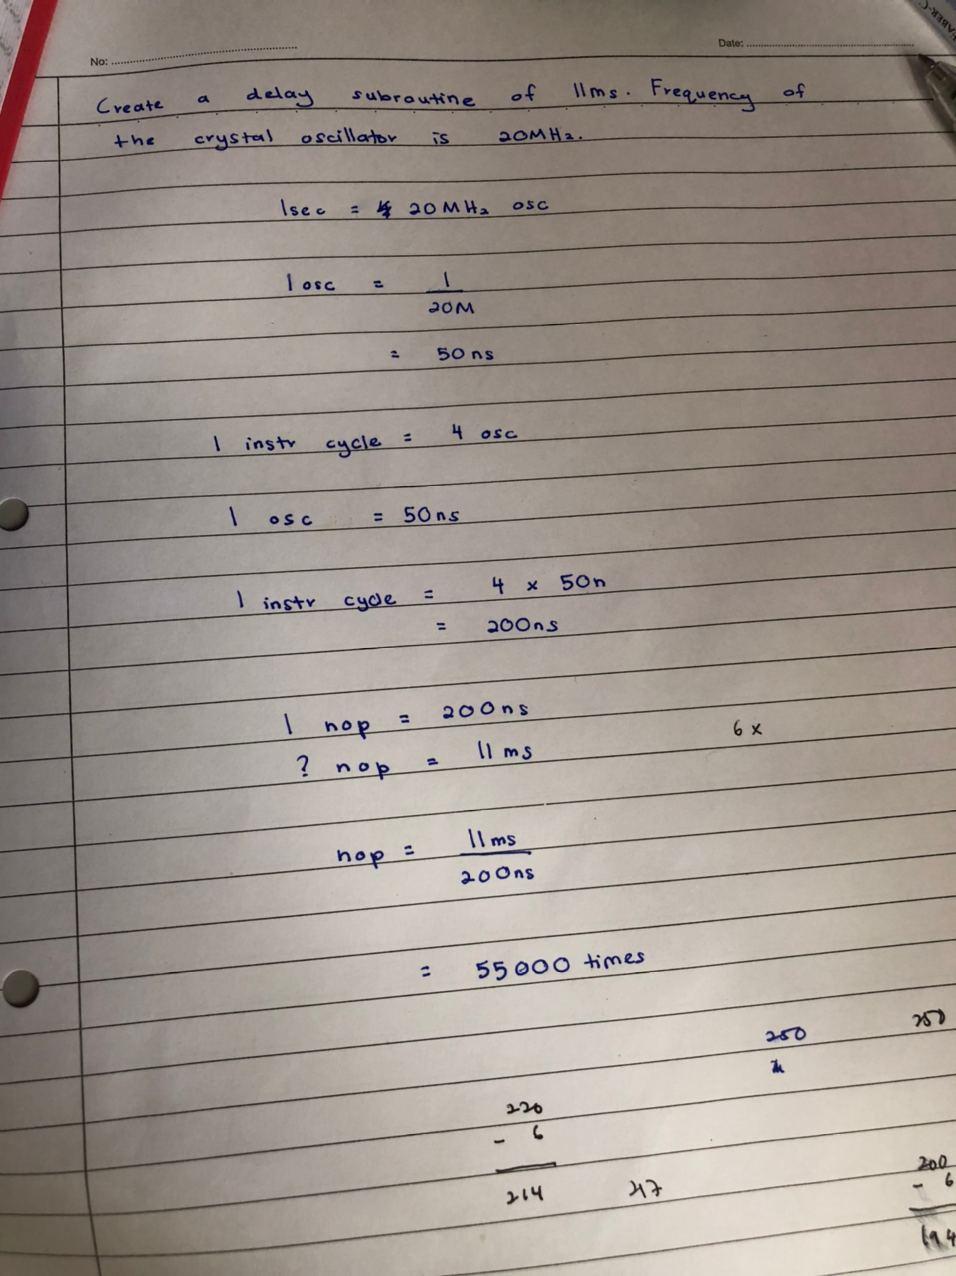 No:
Date:
Create a delay subroutine of 11ms. Frequency of
the crystal oscillator is 20MHz.
1sec = 20MHz osc
1 osc = 1
20M
= 50ns
1 instr cycle = 4 osc
1 osc = 50ns
1 instr cycle = 4 x 50n
= 200ns
1 nop = 200ns
? nop = 11ms
6 x
nop = 11ms
200ns
= 55000 times
250
250
220
- 6
214
47
200
- 6
194